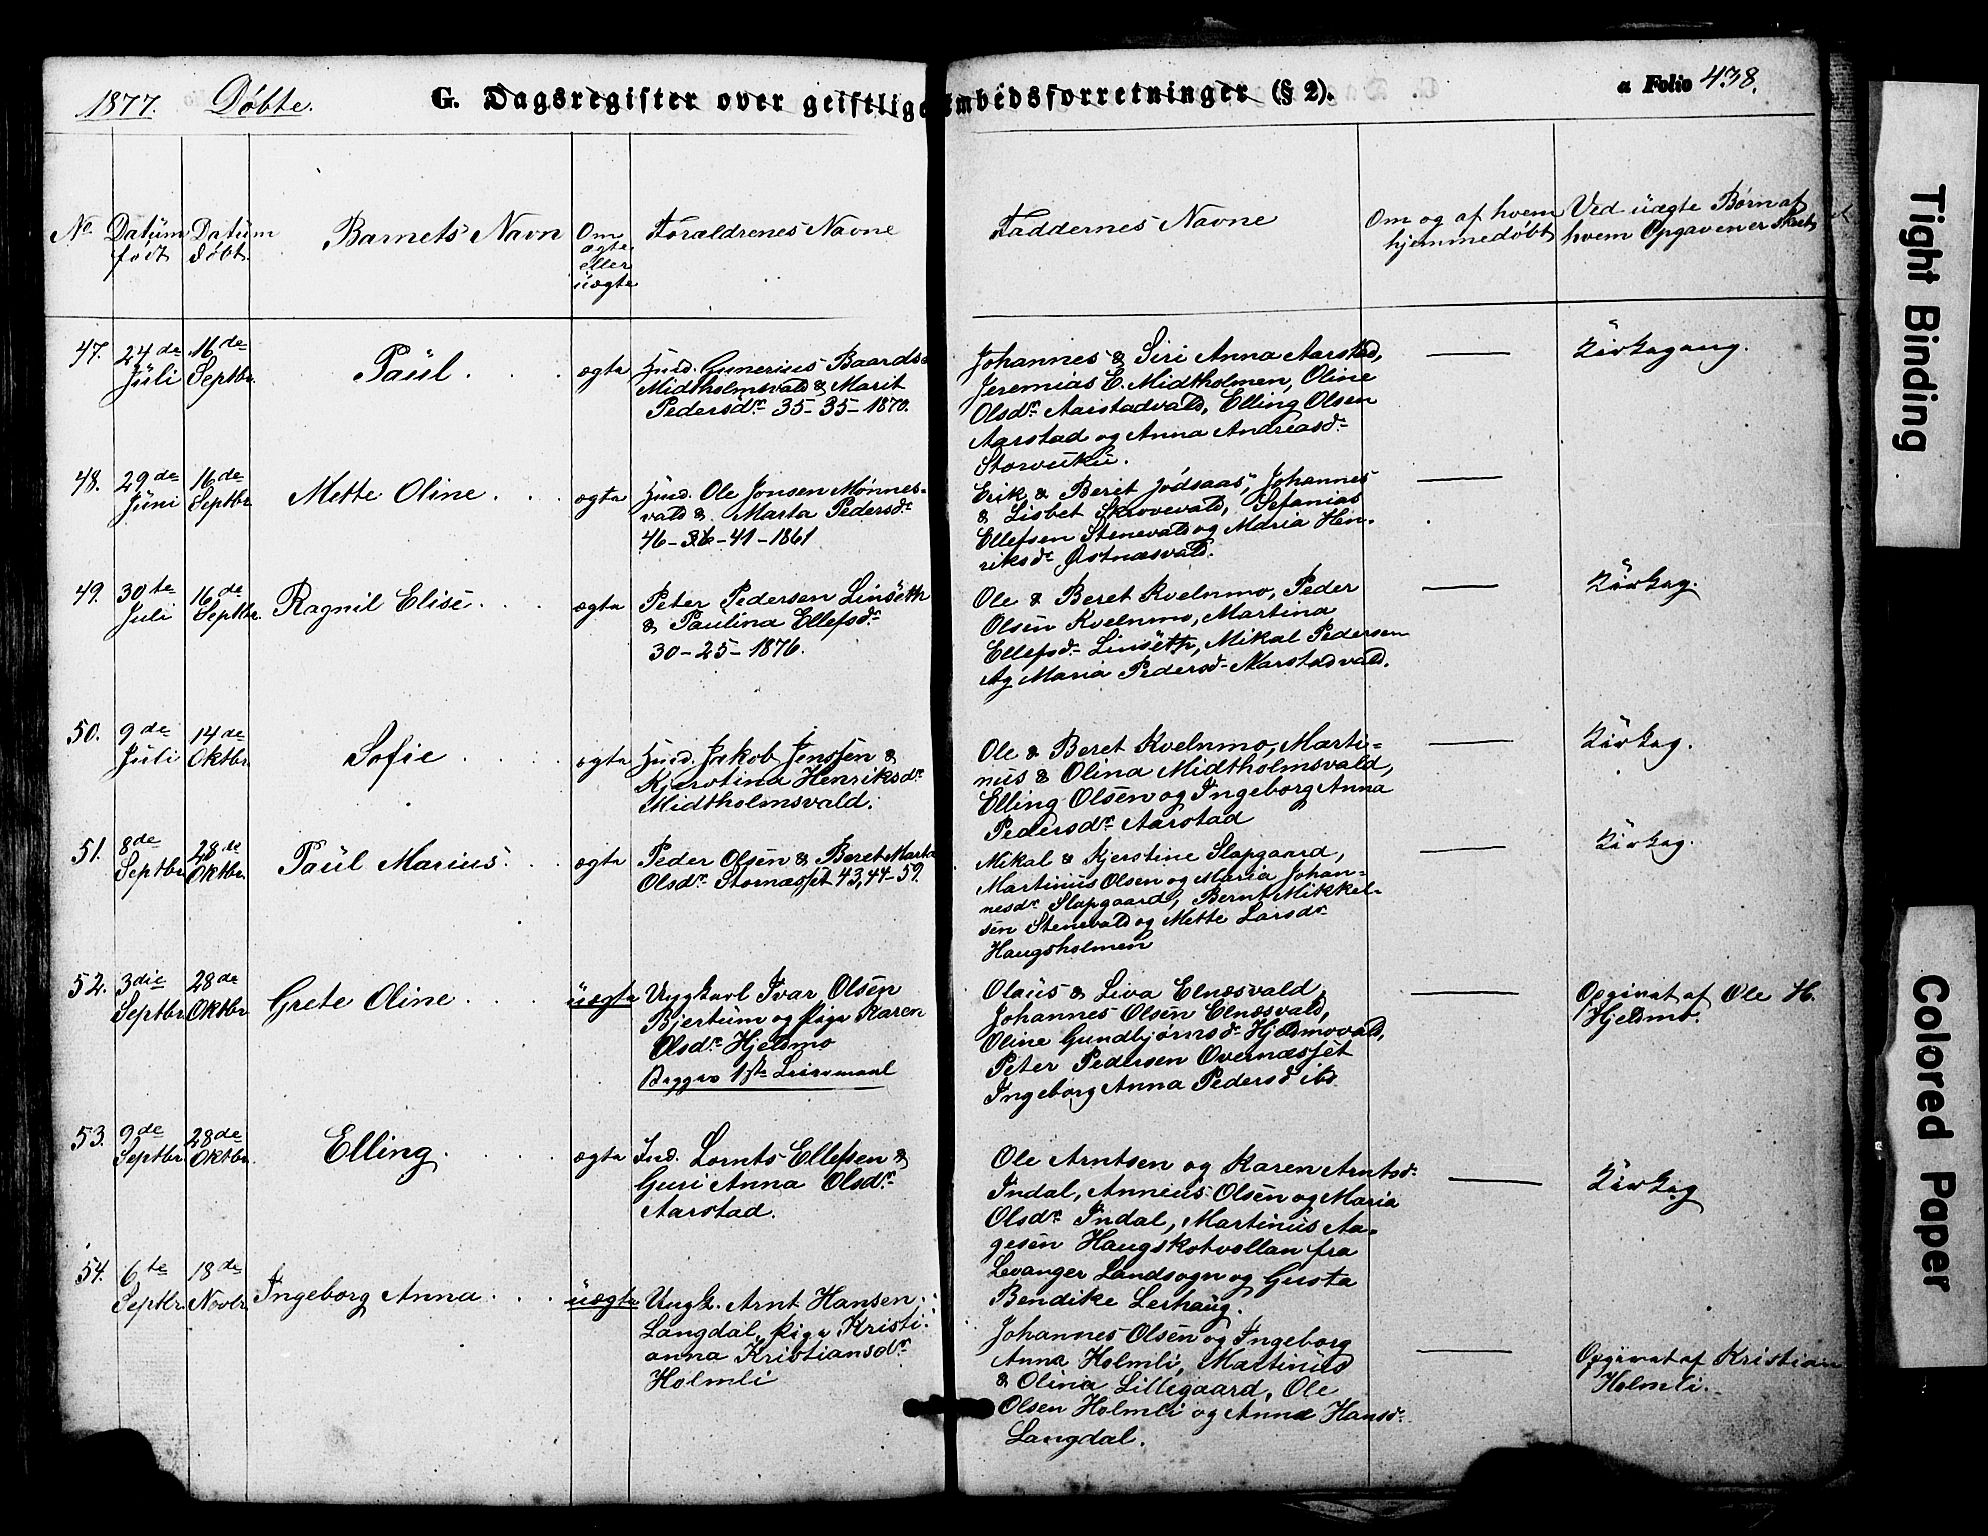 1877. Döbte. G. Dagsregister over geistlige Embedsforretninger (§ 2). a Folio 438.
No. Datum født Datum döbt. Barnets Navn Om ægte eller uægte Forældrenes Navne Faddernes Navne Om og af hvem hjemmedøbt Ved uægte Børn af hvem Opgaven er skeet
47. 24de Juli 16de Septbr. Paul. ægte Huusd. Gunerius Baards.
Midtholmsvald & Marit
Pedersdr. 35-35-1870.
Johannes & Siri Anna Aarstad,
Jeremias E. Midtholmen, Oline
Olsdr. Aarstadvald, Elling Olsen
Aarstad og Anna Andreasd.
Storvuku.
— Kirkegang.
48. 29de Juni 16de Septbr. Mette Oline. ægte Huusd. Ole Jonsen Mønnes-
vald & Marta Pedersdr
46-36-41-1861
Erik & Beret Jødsaas, Johannes
& Lisbet Skrovevald, Sefanias
Ellefsen Stenevald og Maria Hen-
riksdr Østnæsvald.
—
49. 30te Juli 16de Septbr. Ragnil Elise. ægte Peter Pedersen Linseth
& Paulina Ellefsdr.
30-25-1876.
Ole & Beret Kvelnmo, Peder
Olsen Kvelnmo, Martina
Ellefsdr. Linseth, Mikal Pedersen
og Maria Pedersd. Aarstadvald.
— Kirkeg.
50. 9de Juli 14de Oktbr. Sofie ægte Huusd. Jakob Jenssen &
Kjerstina Henriksdr
Midtholmsvald.
Ole & Beret Kvelnmo, Marti-
nus & Olina Midtholmsvald,
Elling Olsen og Ingeborg Anna
Pedersdr. Aarstad
— Kirkeg.
51. 8de Septbr. 28de Oktbr. Paul Marius. ægte Peder Olsen & Beret Marta
Olsdr. Stornæsset 43,44-59.
Mikal & Kjerstine Slapgaard,
Martinus Olsen og Maria Johan-
nesdr Slapgaard, Bernt Mikkel-
sen Stenevald og Mette Larsdr
Haugsholmen
— Kirkeg.
52. 3die Septbr. 28de Oktbr. Grete Oline uægte Ungkarl Ivar Olsen
Bjertum og Pige Karen
Olsdr. Hjeldmo
Begges 1ste Leiermaal
Olaus & Liva Elnæsvald,
Johannes Olsen Elnæsvald,
Oline Gundbjørnsd. Hjeldmovald,
Peter Pedersen Overnæsset
Ingeborg Anna Pedersd. ibd
— Opgivet af Ole H.
Hjeldmo.
53. 9de Septbr. 28de Oktbr. Elling. ægte Ind. Lornts Ellefsen &
Guri Anna Olsdr.
Aarstad.
Ole Arntsen og Karen Arntsd.
Indal, Annæus Olsen og Maria
Olsdr. Indal, Martinus Aa-
gesen Haugskotvollan fra
Levanger Landsogn og Gusta
Bendike Lerhaug.
— Kirkeg
54. 6te Septbr. 18de Novbr. Ingeborg Anna. uægte Ungk. Arnt Hansen
Langdal, Pige Kristi-
anna Kristiansdr
Holmli
Johannes Olsen og Ingeborg
Anna Holmli, Martinus
& Olina Lillegaard, Ole
Olsen Holmli og Anna Hansd.
Langdal.
— Opgivet af Kristian
Holmli.
Tight Binding
Colored Paper